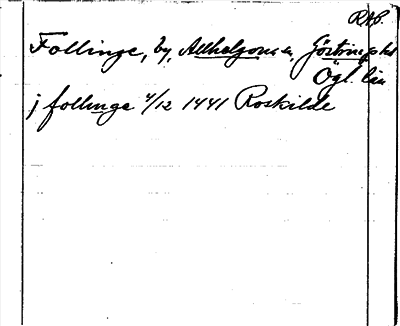 RAP.
Follinge, by, Allhelgona sn, Göstrings hd
Ögl. län
j follinge 4/12 1441 Roskilde